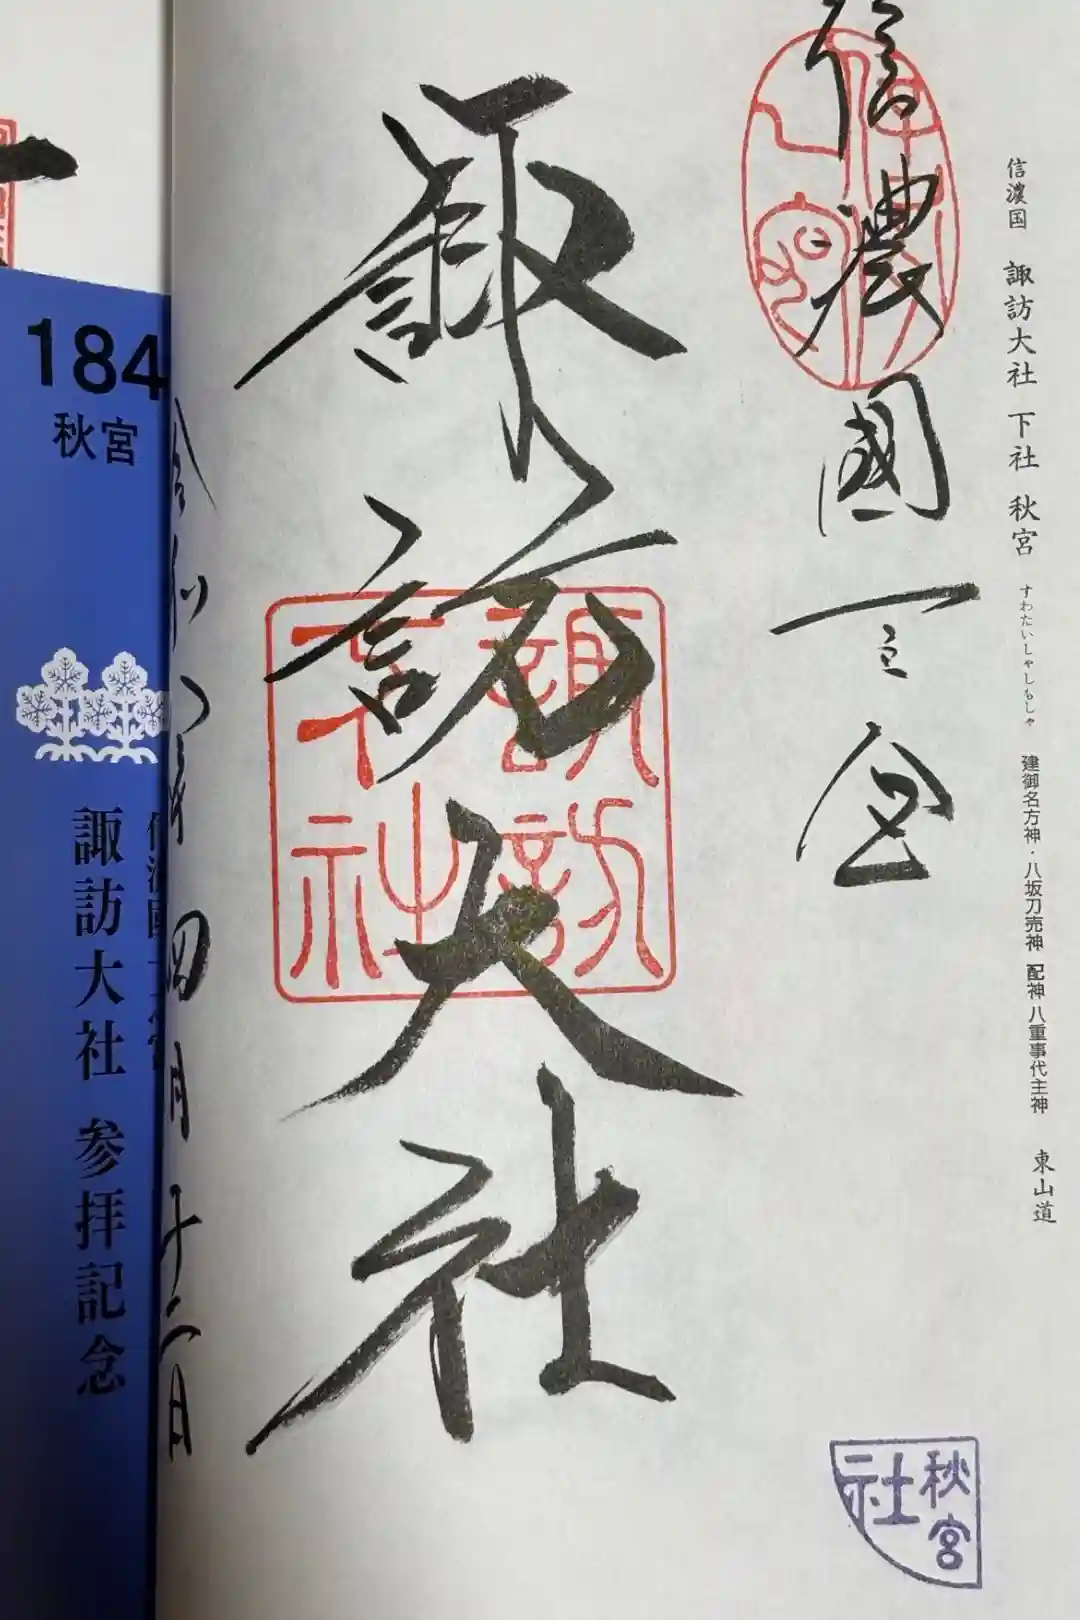 信濃国 諏訪大社 下社 秋宮 すわたいしゃしもしゃ 建御名方神・八坂刀売神 配神 八重事代主神 東山道
信濃國一之宮
諏訪大社
諏訪大社
秋宮
社
令和八年四月十二日
184
秋宮
諏訪大社 参拝記念